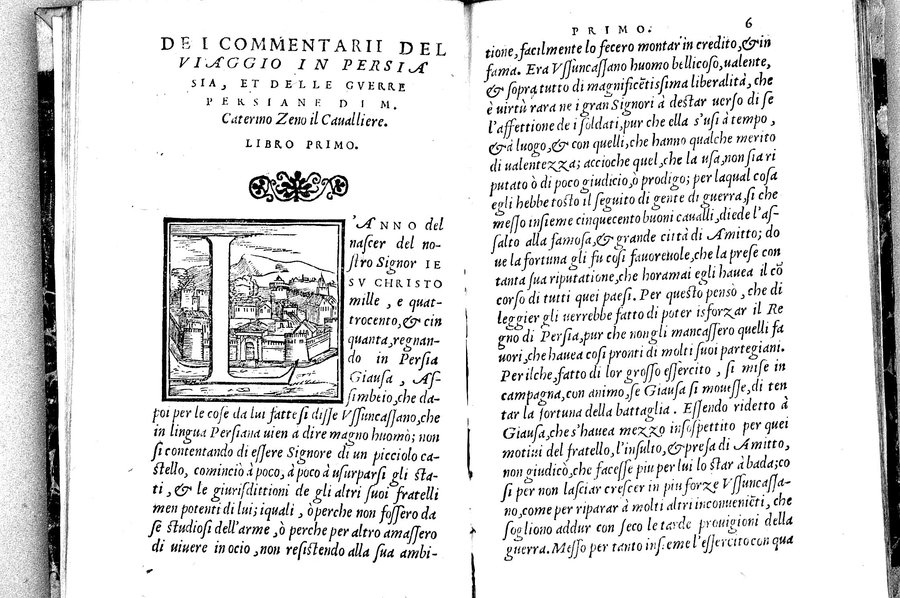 DE I COMMENTARII DEL
VIAGGIO IN PERSIA
SIA, ET DELLE GVERRE
PERSIANE DI M.
Caterino Zeno il Caualliere.
LIBRO PRIMO.
L'ANNO del
nascer del no-
stro Signor IE
SV CHRISTO
mille, e quat-
trocento, & cin
quanta, regnan-
do in Persia
Giausa, As-
simbeio, che da-
poi per le cose da lui fatte si disse Vssuncassano, che
in lingua Persiana uien a dire magno huomo; non
si contentando di essere Signore di un picciolo ca-
stello, cominciò à poco, à poco à usurparsi gli sta-
ti, & le giurisdittioni de gli altri suoi fratelli
men potenti di lui; iquali, ò perche non fossero da
se studiosi dell'arme, ò perche per altro amassero
di uiuere in ocio, non resistendo alla sua ambi-
PRIMO. 6
tione, facilmente lo fecero montar in credito, & in
fama. Era Vssuncassano huomo bellicoso, ualente,
& sopra tutto di magnificẽtissima liberalità, che
è uirtù rara ne i gran Signori à destar uerso di se
l'affettione de i soldati, pur che ella s'usi à tempo,
& à luogo, & con quelli, che hanno qualche merito
di ualentezza; accioche quel, che la usa, non sia ri
putato ò di poco giudicio, ò prodigo; per laqual cosa
egli hebbe tosto il seguito di gente di guerra, si che
messo insieme cinquecento buoni caualli, diede l'as-
salto alla famosa, & grande città di Amitto; do
ue la fortuna gli fu cosi fauoreuole, che la prese con
tanta sua riputatione, che horamai egli hauea il cõ
corso di tutti quei paesi. Per questo pensò, che di
leggier gli uerrebbe fatto di poter isforzar il Re
gno di Persia, pur che non gli mancassero quelli fa
uori, che hauea cosi pronti di molti suoi partegiani.
Perilche, fatto di lor grosso essercito, si mise in
campagna, con animo, se Giausa si mouesse, di ten
tar la fortuna della battaglia. Essendo ridetto à
Giausa, che s'hauea mezzo insospettito per quei
motiui del fratello, l'insulto, & presa di Amitto,
non giudicò, che facesse piu per lui lo star à bada; co
si per non lasciar crescer in piu forze Vssuncassa-
no, come per riparar à molti altri inconueniẽti, che
sogliono addur con seco le tarde prouigioni della
guerra. Messo per tanto insieme l'essercito con qua